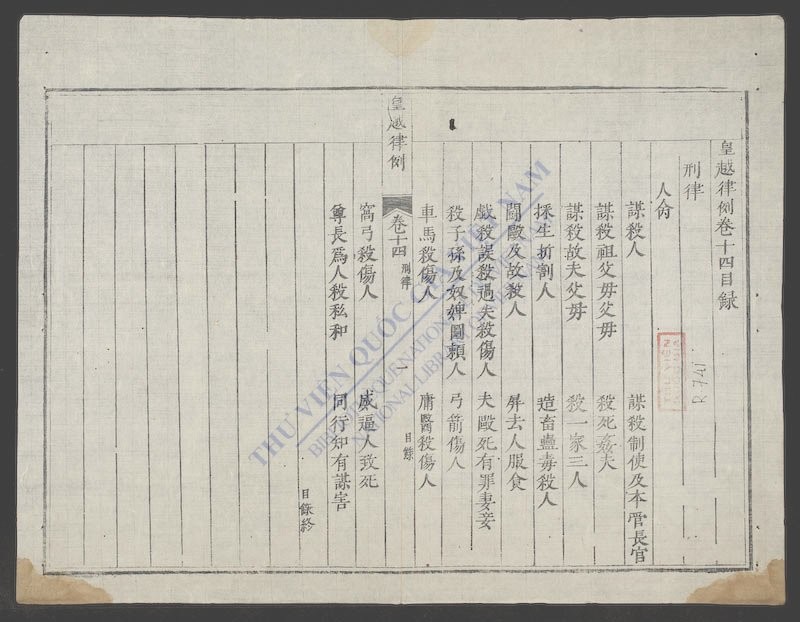 皇越律例卷十四目録
刑律
人命
謀殺人 謀殺制使及本管長官
謀殺祖父母父母 殺死姦夫
謀殺故夫父母 殺一家三人
採生折割人 造畜蠱毒殺人
鬪毆及故殺人 屏去人服食
戲殺誤殺過失殺傷人 夫毆死有罪妻妾
殺子孫及奴婢圖賴人 弓箭傷人
車馬殺傷人 庸醫殺傷人
皇越律例 卷十四 刑律 一 目録
窩弓殺傷人 威逼人致死
尊長為人殺私和 同行知有謀害
目録終
R.741
THƯ VIỆN QUỐC GIA VIỆT NAM
NATIONAL LIBRARY OF